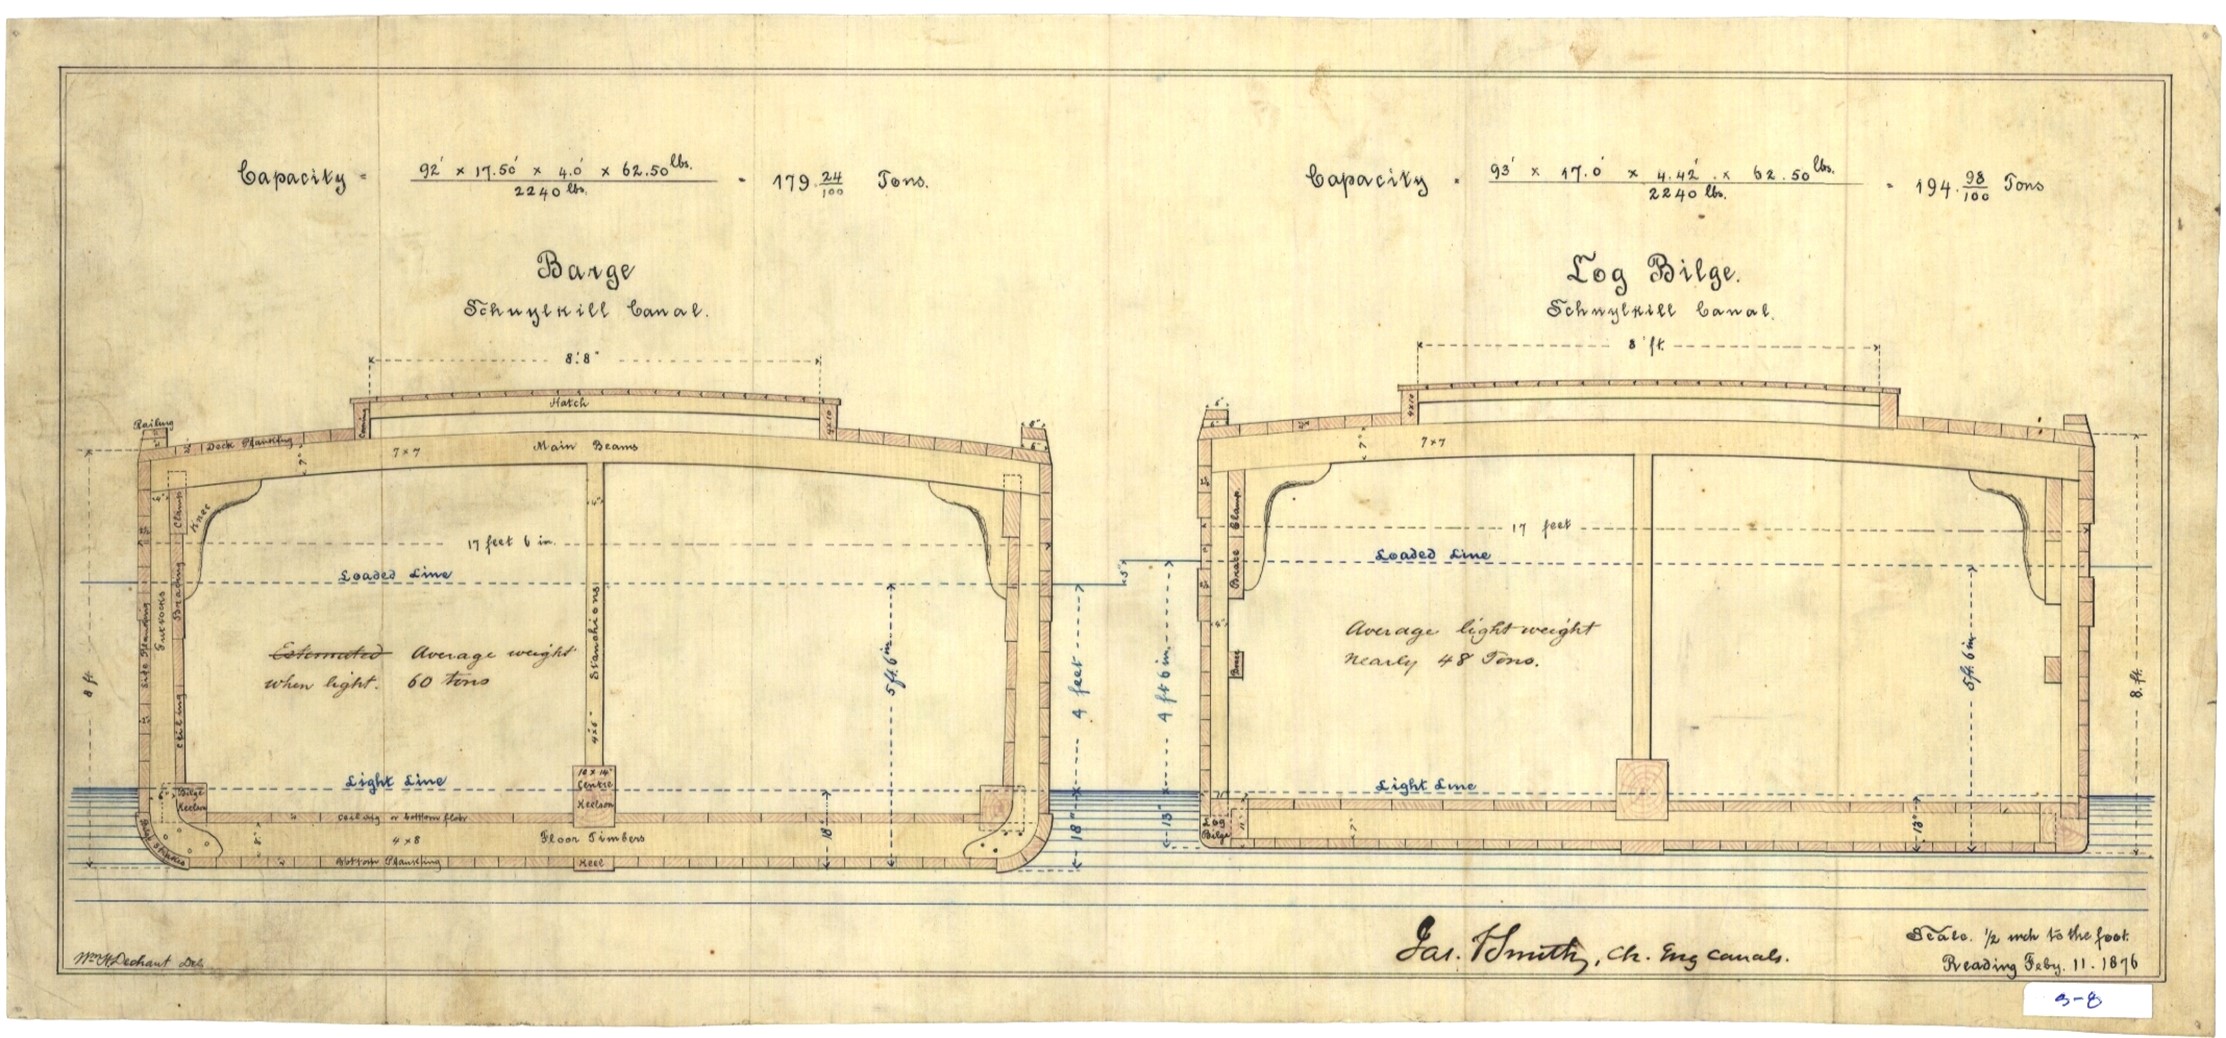 Capacity = 92' × 17.50' × 4.0' × 62.50 lbs. / 2240 lbs. = 179. 24/100 Tons.
Barge
Schuylkill Canal.
8'.8"
Hatch
Railing
2"
Deck Planking
Coming
4x10
7×7
Main Beams
7"
6"
4"
Clamp
Knee
17 feet 6 in.
Loaded Line
Side Planking
Futtocks
Bracing
Ceiling
Stanchions
4"x6"
Estimated Average weight
when light. 60 tons
8 ft.
5 ft. 6 in.
4 feet
Light Line
Bilge
Keelson
10 x 14"
Centre
Keelson
ceiling or bottom floor
4 x 8
Floor Timbers
8"
18"
18"
bottom Planking
Keel
Capacity = 93' × 17.0' × 4.42' × 62.50 lbs. / 2240 lbs. = 194. 98/100 Tons
Log Bilge.
Schuylkill Canal.
8 ft.
6"
4x10
7"
7×7
Clamp
17 feet
Loaded Line
5"
Brace
Average light weight
nearly 48 Tons.
4 ft 6 in.
5 ft. 6 in.
8. ft.
Light Line
Log
Bilge
13"
13"
Wm H Dechant Del.
Jas. F Smith, Ch. Eng Canals.
Scale. 1/2 inch to the foot.
Reading Feby. 11. 1876
3-8